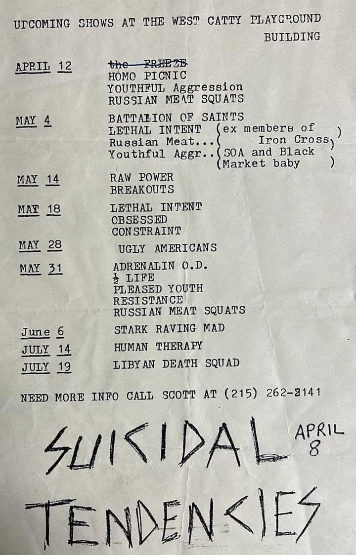 UPCOMING SHOWS AT THE WEST CATTY PLAYGROUND
BUILDING
APRIL 12 the FREEZE
HOMO PICNIC
YOUTHFUL Aggression
RUSSIAN MEAT SQUATS
MAY 4 BATTALION OF SAINTS
LETHAL INTENT (ex members of
Russian Meat...( Iron Cross)
Youthful Aggr..(SOA and Black
(Market baby )
MAY 14 RAW POWER
BREAKOUTS
MAY 18 LETHAL INTENT
OBSESSED
CONSTRAINT
MAY 28 UGLY AMERICANS
MAY 31 ADRENALIN O.D.
½ LIFE
PLEASED YOUTH
RESISTANCE
RUSSIAN MEAT SQUATS
June 6 STARK RAVING MAD
JULY 14 HUMAN THERAPY
JULY 19 LIBYAN DEATH SQUAD
NEED MORE INFO CALL SCOTT AT (215) 262-2141
SUICIDAL APRIL
8
TENDENCIES